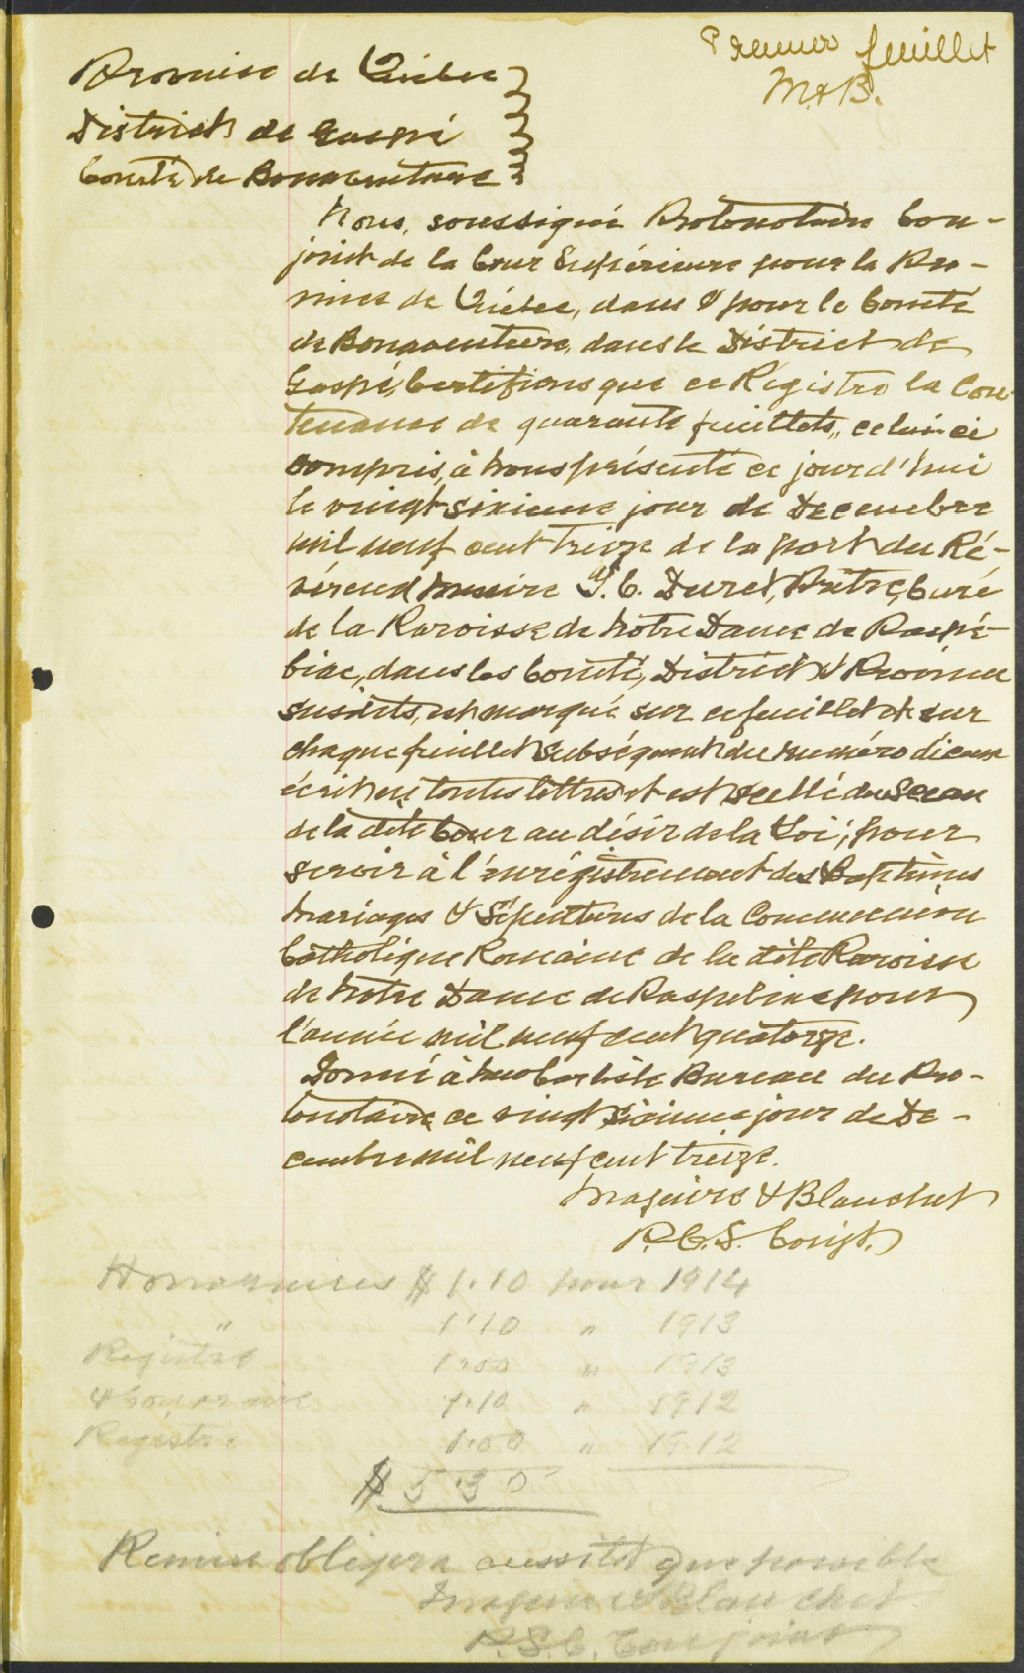 Premier feuillet
M & B.
Province de Québec
District de Gaspé
Comté de Bonaventure
Nous, soussigné Protonotaire Con-
joint de la Cour Supérieure pour la Pro-
vince de Québec, dans & pour le Comté
de Bonaventure, dans le District de
Gaspé, Certifions que ce Régistre la Con-
tenance de quarante feuillets, celui-ci
compris, à nous présenté ce jourd'hui
le vingt sixieme jour de Decembre
mil neuf cent treize de la part du Ré-
vérend Messire J. C. Duret, Prêtre, Curé
de la Paroisse de Notre Dame de Paspé-
biac, dans les Comté, District & Province
susdits, est marqué sur ce feuillet et sur
chaque feuillet subséquent du numéro d'iceux
écrit en toutes lettres et est scellé du Sceau
de la dite Cour au désir de la Loi; pour
servir à l'enrégistrement des Baptêmes
Mariages & Sépultures de la Communion
Catholique Romaine de la dite Paroisse
de Notre Dame de Paspebiac pour
l'année mil neuf cent quatorze.
Donné à New Carlisle Bureau du Pro-
tonotaire ce vingt sixieme jour de De-
cembre mil neuf cent treize.
Maguire & Blanchet
P. C. S. Conjt.
Honoraires $ 1.10 pour 1914
" 1.10 " 1913
Registre 1.00 " 1913
1.10 " 1912
Registre 1.00 " 1912
$ 5.30
Remise obligera aussitôt que possible
Maguire & Blanchet
P.S.C. Conjoint